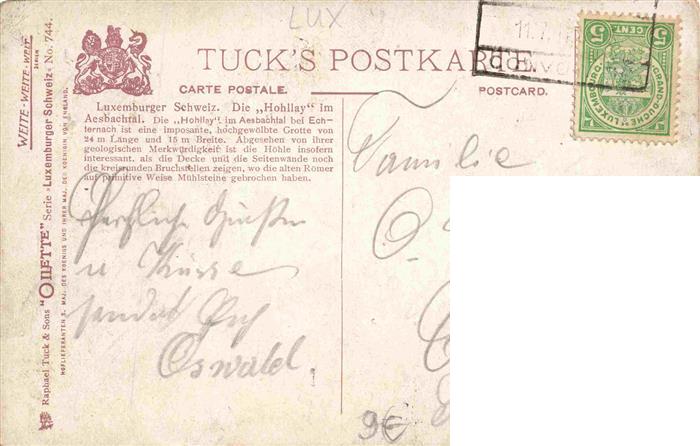 LUX
TUCK'S POSTKARTE.
CARTE POSTALE.
POSTCARD.
Luxemburger Schweiz. Die „Hohllay" im
Aesbachtal. Die „Hohllay" im Aesbachtal bei Ech-
ternach ist eine imposante, hochgewölbte Grotte von
24 m Länge und 15 m Breite. Abgesehen von ihrer
geologischen Merkwürdigkeit ist die Höhle insofern
interessant, als die Decke und die Seitenwände noch
die kreisrunden Bruchstellen zeigen, wo die alten Römer
auf primitive Weise Mühlsteine gebrochen haben.
Herzliche Grüße
u Küsse
sendet Euch
Oswald.
Familie
9€
5 5
CENT. CENT.
GRAND-DUCHÉ DE LUXEMBOURG
WEITE-WEITE-WELT
BERLIN
Raphael Tuck & Sons "OILETTE" Serie »Luxemburger Schweiz« No. 744.
HOFLIEFERANTEN S. MAJ. DES KOENIGS UND IHRER MAJ. DER KOENIGIN VON ENGLAND.